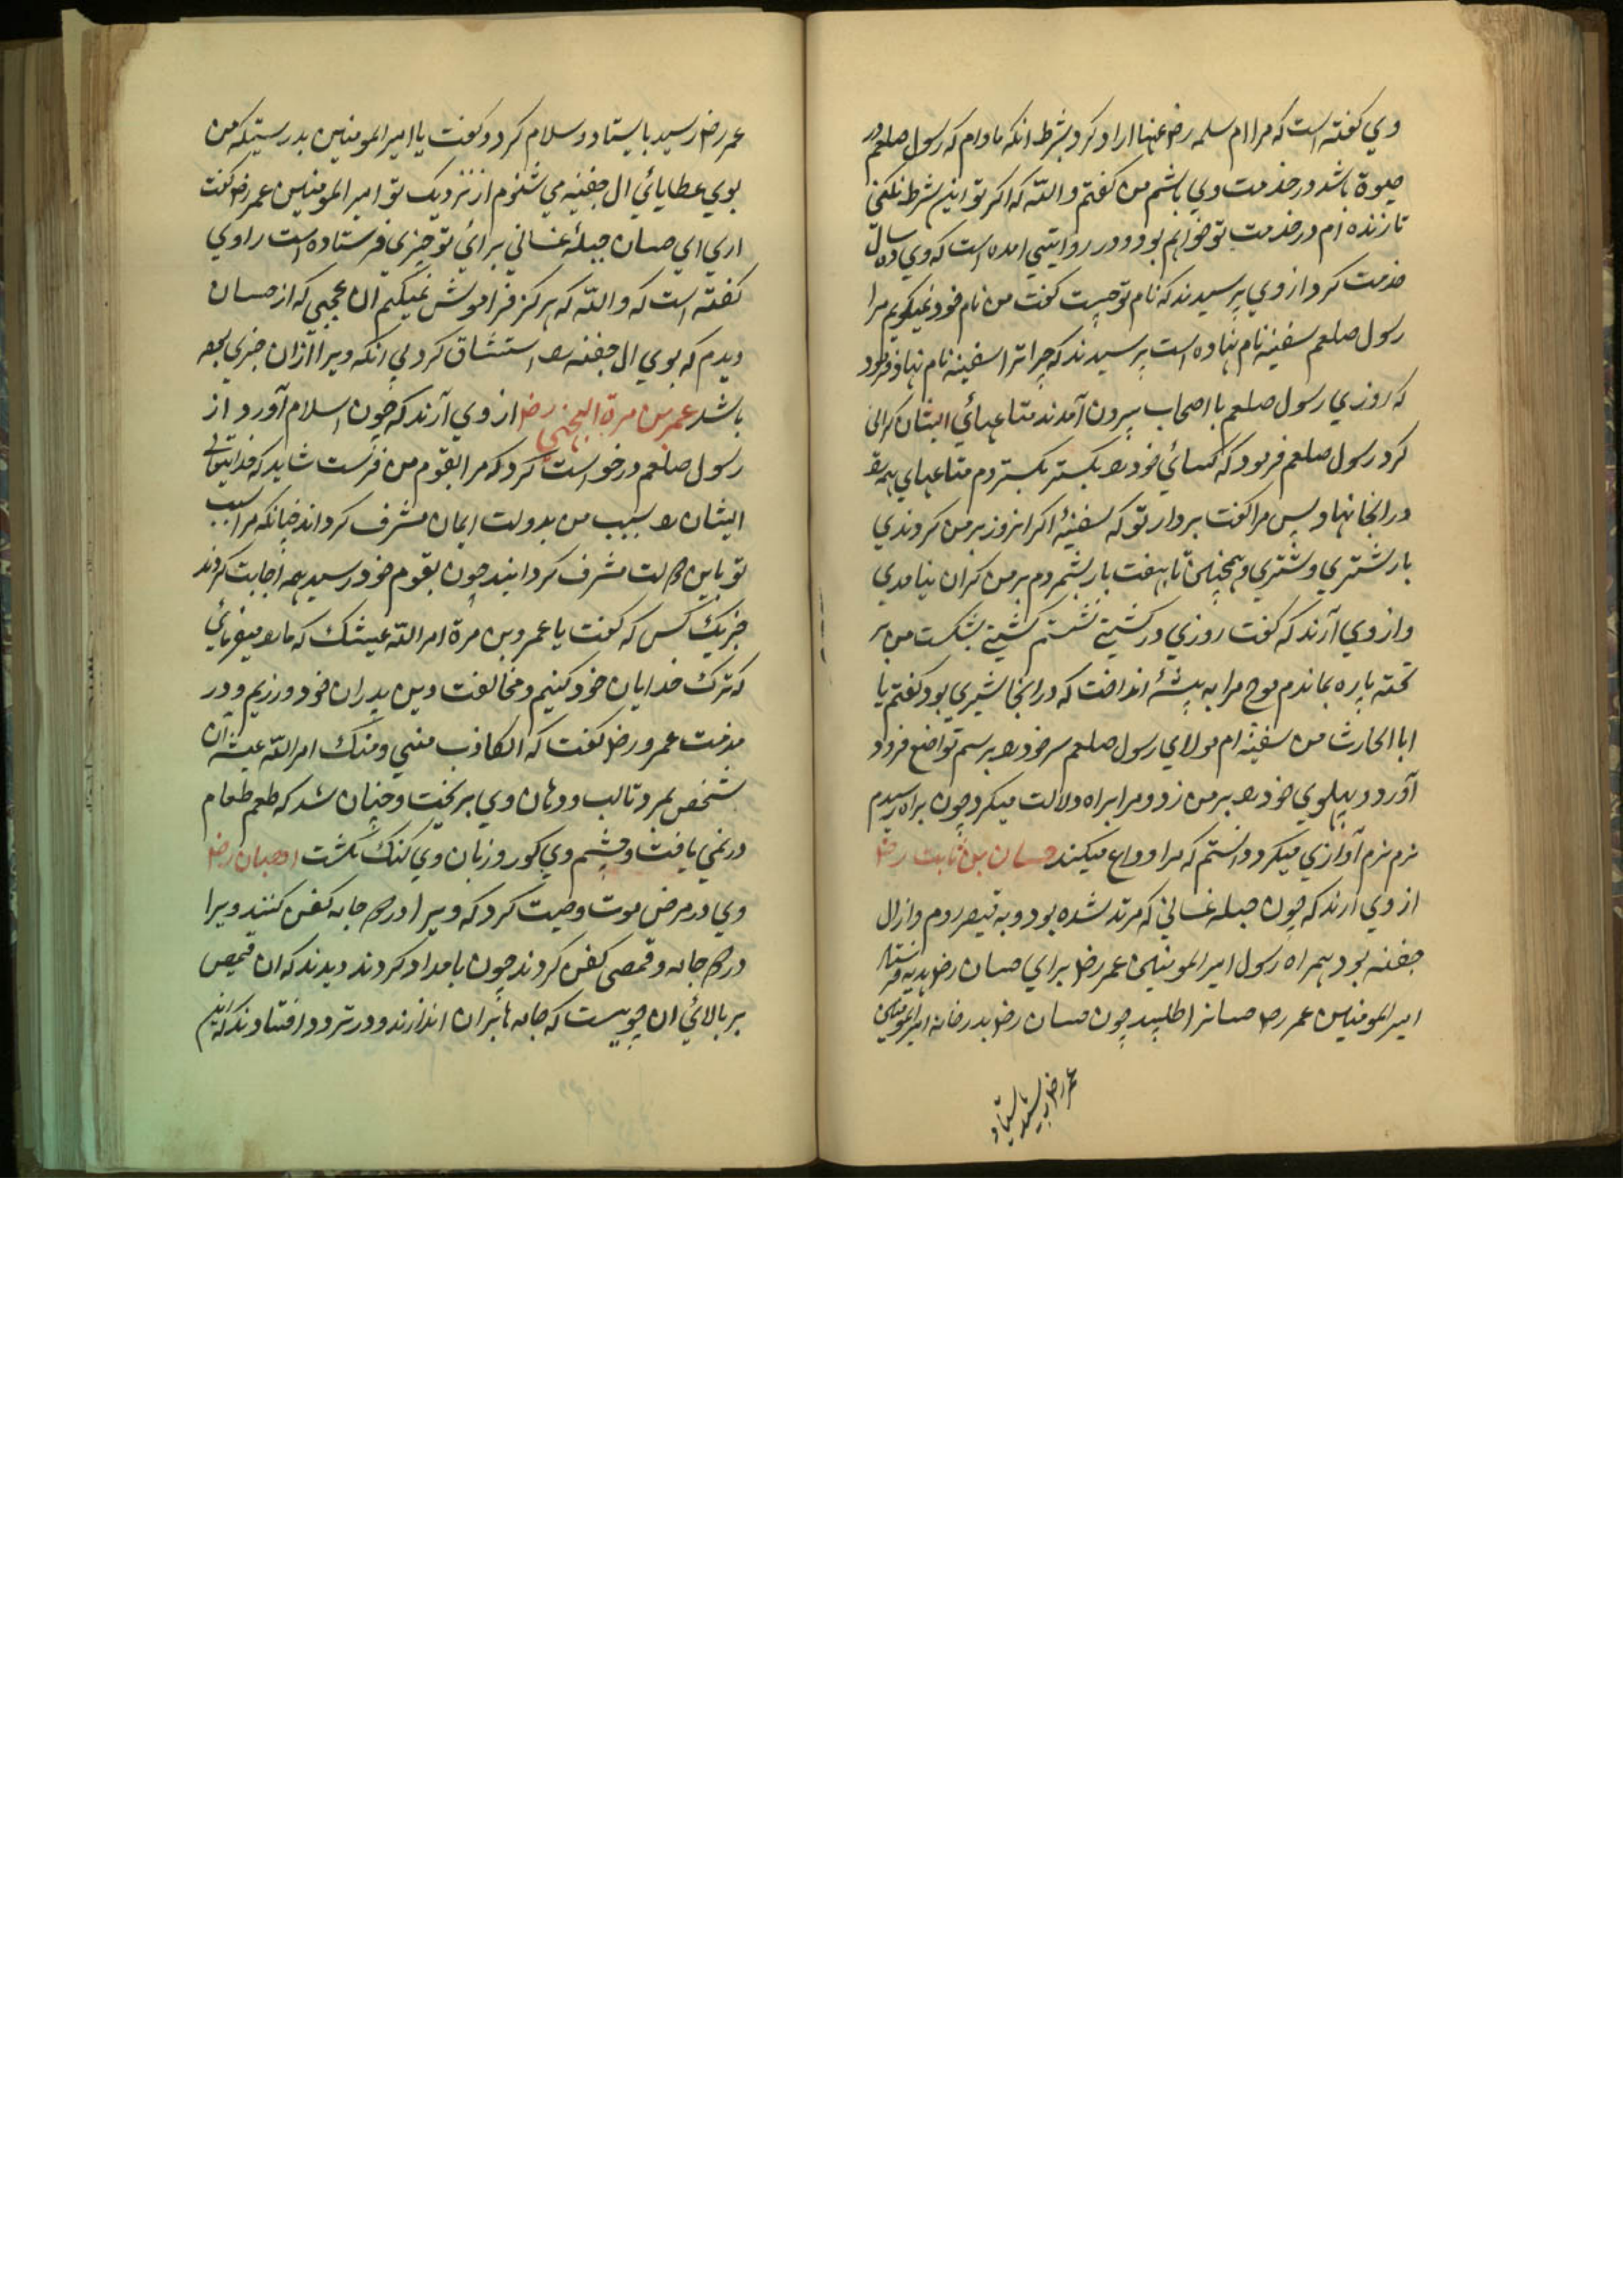 وي كفته است كه مرا ام سلمه رض عنها ازاد كرد بشرط انكه مادام كه رسول صلعم در
حيوة باشد در خدمت وي باشم من كفتم والله كه اكر تو اين شرط نكني
تا زنده ام در خدمت تو خواهم بود و در روايتي امده است كه وي ده سال
خدمت كرد از وي پرسيدند كه نام تو چيست كفت من نام خود نميكويم مرا
رسول صلعم سفينه نام نهاده است پرسيدند كه چرا ترا سفينه نام نهاد فرمود
كه روزي رسول صلعم با اصحاب بيرون آمدند متاعهائي ايشان كراني
كرد رسول صلعم فرمود كه كسائي خود را بكستر بكستردم متاعهاي همه را
در انجا نهاد پس مرا كفت بردار تو كه سفينهٔ اكر انروز بر من كردندي
بار شتري و شتري و همچنين تا بهفت بار بشمردم بر من كران نيامدي
و از وي آرند كه كفت روزي در كشتي نشستم كشتي بشكست من بر
تخته پاره بماندم موج مرا به بيشهٔ انداخت كه در انجا شيري بود كفتم يا
ابا الحارث من سفينه ام مولاي رسول صلعم سر خود را برسم تواضع فرود
آورد و پهلوي خود را بر من زد و مرا براه دلالت ميكرد چون براه رسيدم
نرم نرم آوازي ميكرد دانستم كه مرا وداع ميكند حسان بن ثابت رض
از وي آرند كه چون جبله غساني كه مرتد شده بود و به قيصر روم و از ال
جفنه بود همراه رسول امير المومنين عمر رض براي حسان رض هديه فرستاد
امير المومنين عمر رض حسانرا طلبيد چون حسان رض بدر خانه امير المومنين
عمر رض رسيد بايستاد
عمر رض رسيد بايستاد و سلام كرد و كفت يا امير المومنين بدرستيكه من
بوي عطايائي ال جفنه مي شنوم از نزديك تو امير المومنين عمر رض كفت
اري اي حسان جبلهٔ غساني برائي تو چيزي فرستاده است راوي
كفته است كه والله كه هركز فراموش نميكنم ان عجبي كه از حسان
ديدم كه بوي ال جفنه را استنشاق كرد بي انكه ويرا ازان خبري
باشد عمر بن مرة الجهني رض از وي آرند كه چون اسلام آورد از
رسول صلعم درخواست كرد كه مرا بقوم من فرست شايد كه خدايتعالي
ايشان را بسبب من بدولت ايمان مشرف كرداند چنانكه مرا بسبب
تو باين دولت مشرف كردانيد چون بقوم خود رسيد همه اجابت كردند
جز يك كس كه كفت يا عمرو بن مرة امر الله عيشك كه ما را ميفرمائي
كه ترك خدايان خود كنيم و مخالفت دين پدران خود ورزيم و در
مذمت عمرو رض كفت كه الكاذب مني و منك امر الله عيشه آن
شخص نمرد تا لب و دهان وي بريخت و چنان شد كه طعم طعام
در نمي يافت و چشم وي كور و زبان وي كنك كشت اهبان رض
وي در مرض موت وصيت كرد كه ويرا در دو جامه كفن كنند ويرا
در دو جامه و قميصي كفن كردند چون بامداد كردند ديدند كه ان قميص
بر بالائي ان چوبيست كه جامه ها بران اندازند و در تردد افتادند كه اين